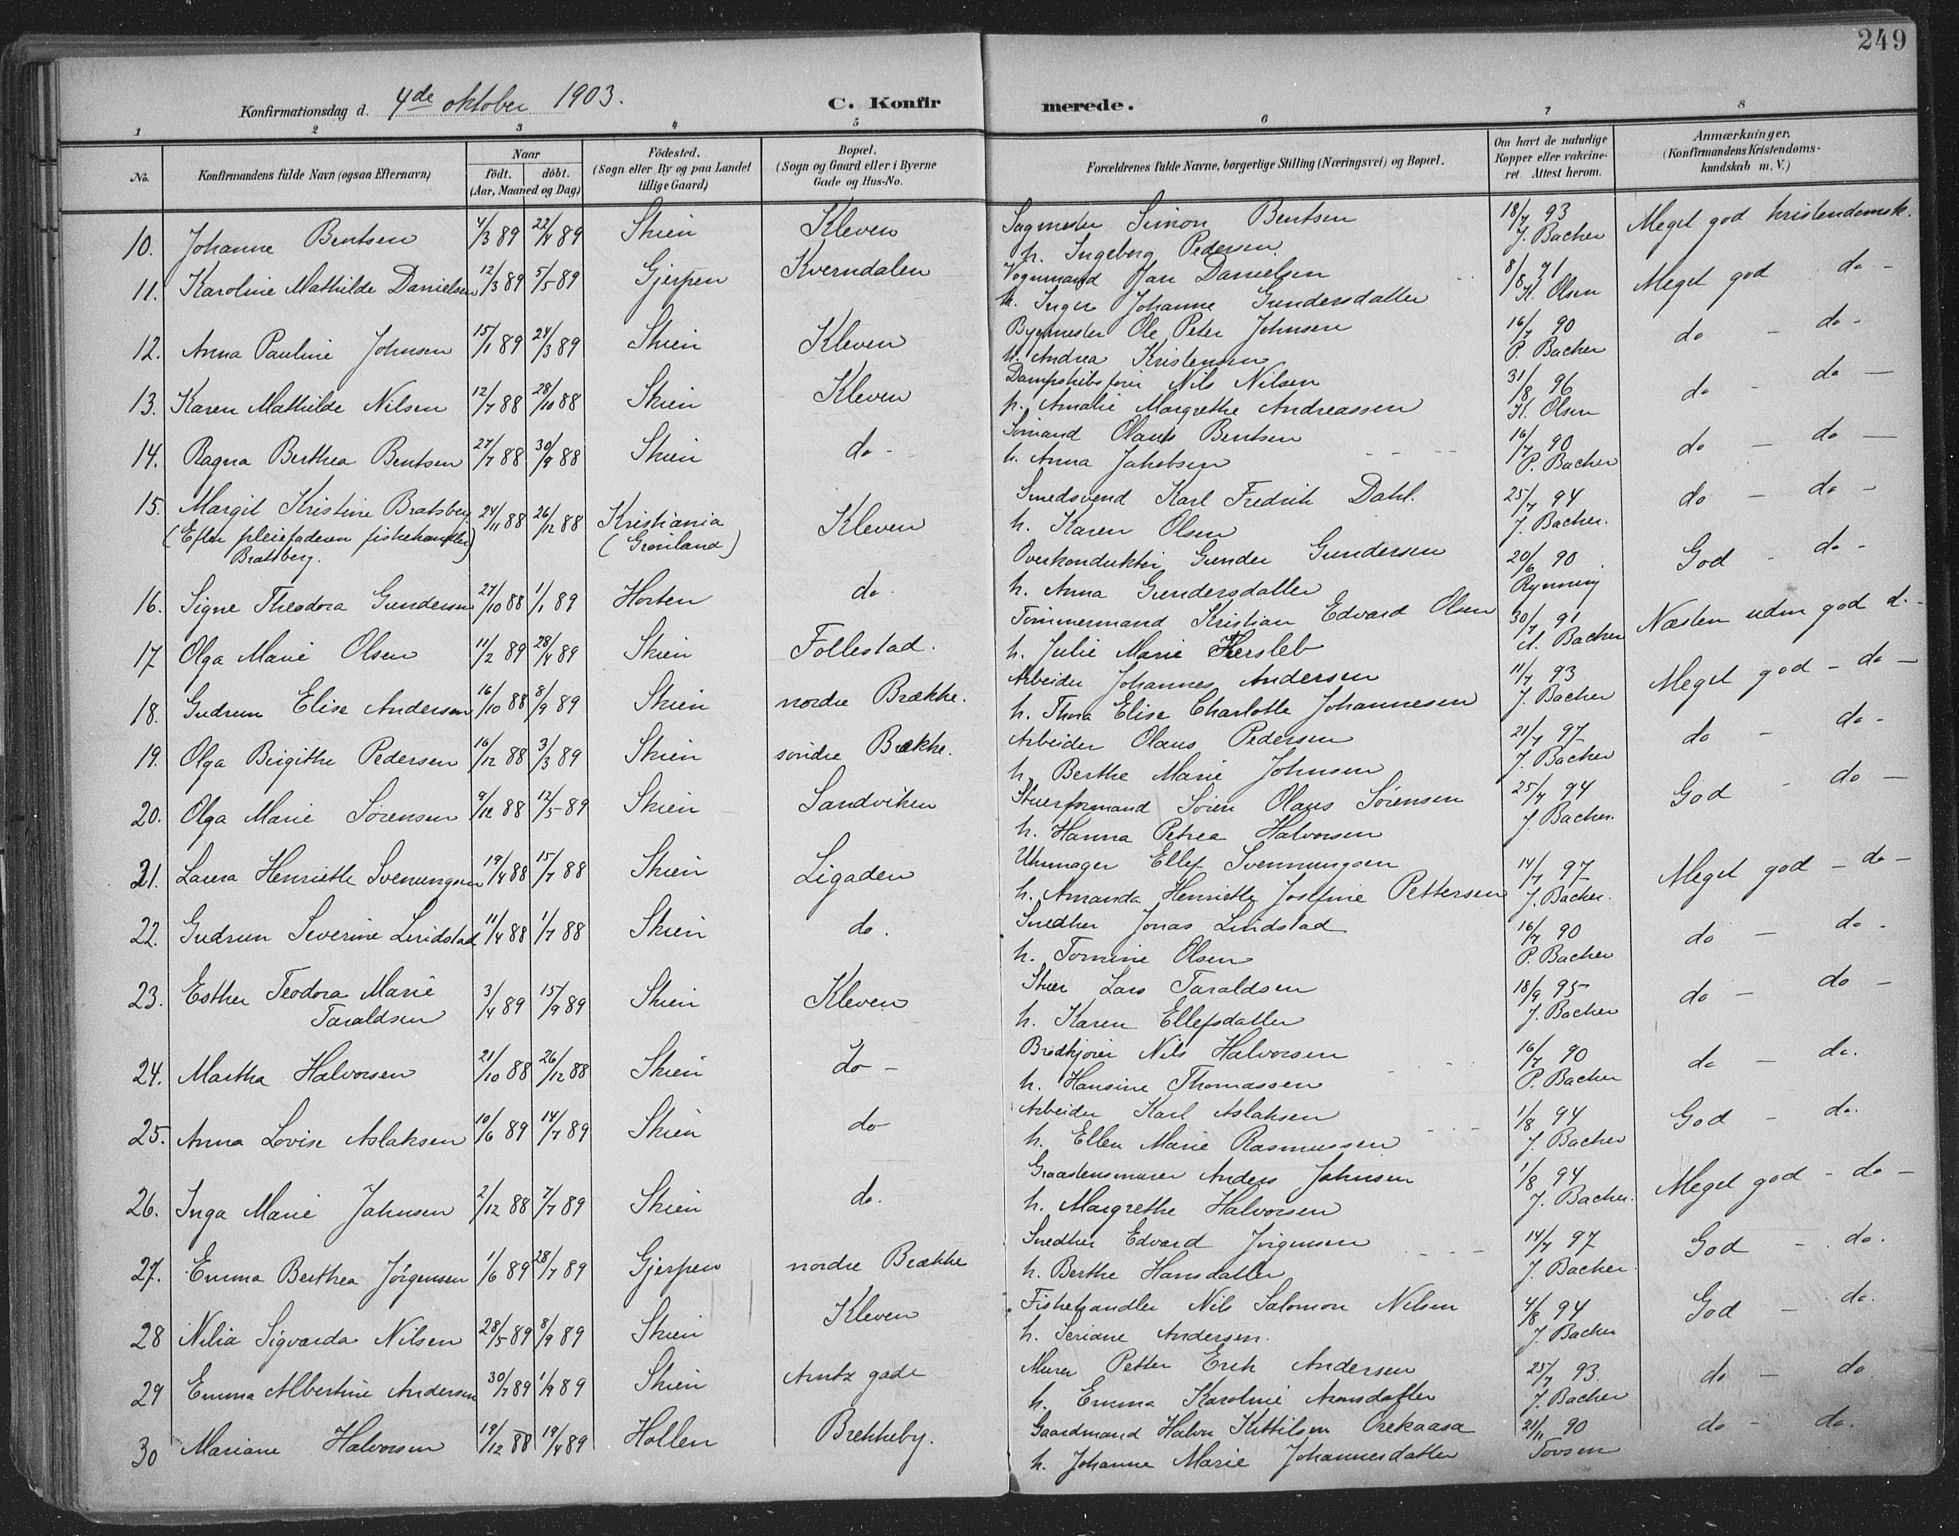 249
Konfirmationsdag d. 4de oktober 1903. C. Konfirmerede.
1 2 3 4 5 6 7 8
No. Konfirmandens fulde Navn (ogsaa Efternavn) Naar født. døbt. (Aar, Maaned og Dag) Fødested. (Sogn eller By og paa Landet tillige Gaard) Bopæl. (Sogn og Gaard eller i Byerne Gade og Hus-No. Forældrenes fulde Navne, borgerlige Stilling (Næringsvei) og Bopæl. Om havt de naturlige Kopper eller vakcineret. Attest herom. Anmærkninger. (Konfirmandens Kristendomskundskab m. V.)
10. Johanne Bentsen 4/3 89 22/4 89 Skien Kleven Sagmester Simon Bentsen 18/7 93 Meget god kristendomsk.
h. Ingeborg Pedersen J. Backer
11. Karoline Mathilde Danielsen 12/3 89 5/5 89 Gjerpen Kverndalen Vognmand Jan Danielsen 8/8 91 Meget god do -
h. Inger Johanne Gundersdatter H. Olsen
12. Anna Pauline Johnsen 15/1 89 24/3 89 Skien Kleven Bygmester Ole Peter Johnsen 16/7 90 do - do -
h. Andrea Kristensen P. Backer
13. Karen Mathilde Nilsen 12/7 88 28/10 88 Skien Kleven Dampskibsfører Nils Nilsen 31/8 96 do - do -
h. Amalie Margrethe Andreassen H. Olsen
14. Ragna Berthea Bentsen 27/7 88 30/9 88 Skien do - Sømand Olaus Bentsen 16/7 90 do - do -
h. Anna Jakobsen P. Backer
15. Margit Kristine Bratsberg 24/11 88 26/12 88 Kristiania Kleven Smedsvend Karl Fredrik Dahl. 25/7 94 do - do -
(Efter pleiefaderen fiskehandler (Grønland) h. Karen Olsen J. Backer.
Bratsberg.
16. Signe Theodora Gundersen 27/10 88 1/1 89 Horten do. Overkonduktør Gunder Gundersen 20/6 90 God - do -
h. Anna Gundersdatter Rynning
17 Olga Marie Olsen 11/2 89 28/4 89 Skien Follestad. Tømmermand Kristian Edvard Olsen 30/7 91 Næsten udm god d. -
h. Julie Marie Hersleb A. Backer
18. Gudrun Elise Andersen 16/10 88 8/9 89 Skien nordre Brække. Arbeider Johannes Andersen 11/7 93 Meget god - do -
h. Thora Elise Charlotte Johannesen J. Backer
19. Olga Birgithe Pedersen 16/12 88 3/3 89 Skien søndre Brække. Arbeider Olaus Pedersen 21/7 97 do - do -
h. Berthe Marie Johnsen J. Backer
20. Olga Marie Sørensen 9/12 88 12/5 89 Skien Sandviken Stuerformand Søren Olaus Sørensen 25/7 94 God - do -
h. Hanna Petrea Halvorsen J. Backer.
21. Laura Henriette Svenungsen 19/4 88 15/7 88 Skien Ligaden Uhrmager Ellef Svennungsen 14/7 97 Meget god - do -
h. Amanda Henriette Josefine Pettersen J. Backer.
22. Gudrun Severine Lindstad 11/4 88 1/7 88 Skien do. Snedker Jonas Lindstad 16/7 90 do - do -
h. Tomine Olsen P. Backer
23. Esther Teodora Marie 3/4 89 15/9 89 Skien Kleven Stuer Lars Taraldsen 18/9 95 do - do -
Taraldsen h. Karen Ellefsdatter J. Backer
24. Martha Halvorsen 21/10 88 26/12 88 Skien do - Brødkjører Nils Halvorsen 16/7 90 do - do.
h. Hansine Thomassen P. Backer
25. Anna Lovise Aslaksen 10/6 89 14/7 89 Skien do Arbeider Karl Aslaksen 1/8 94 God - do.
h. Ellen Marie Rasmussen J. Backer
26. Inga Marie Johnsen 2/12 88 7/7 89 Skien do. Graastensmurer Anders Johnsen 1/8 94 Meget god - do -
h. Margrethe Halvorsen J. Backer.
27. Emma Berthea Jørgensen 1/6 89 28/7 89 Gjerpen nordre Brække Snedker Edvard Jørgensen 14/7 97 God - do.
h. Berthe Hansdatter J. Backer
28 Nilia Sigvarda Nilsen 28/5 89 8/9 89 Skien Kleven Fiskehandler Nils Salomon Nilsen 4/8 94 God - do.
h. Seriane Andersen. J. Backer
29 Emma Albertine Andersen 30/7 89 1/9 89 Skien Arntz gade Murer Petter Erik Andersen 25/7 93. do - do
h. Emma Karoline Aronsdatter J. Backer
30 Mariane Halvorsen 19/12 88 19/4 89 Hollen Brekkeby. Gaardmand Halvor Kittilsen Orekaasa 21/11 90 do - do.
h. Johanne Marie Johannesdatter Tovsen